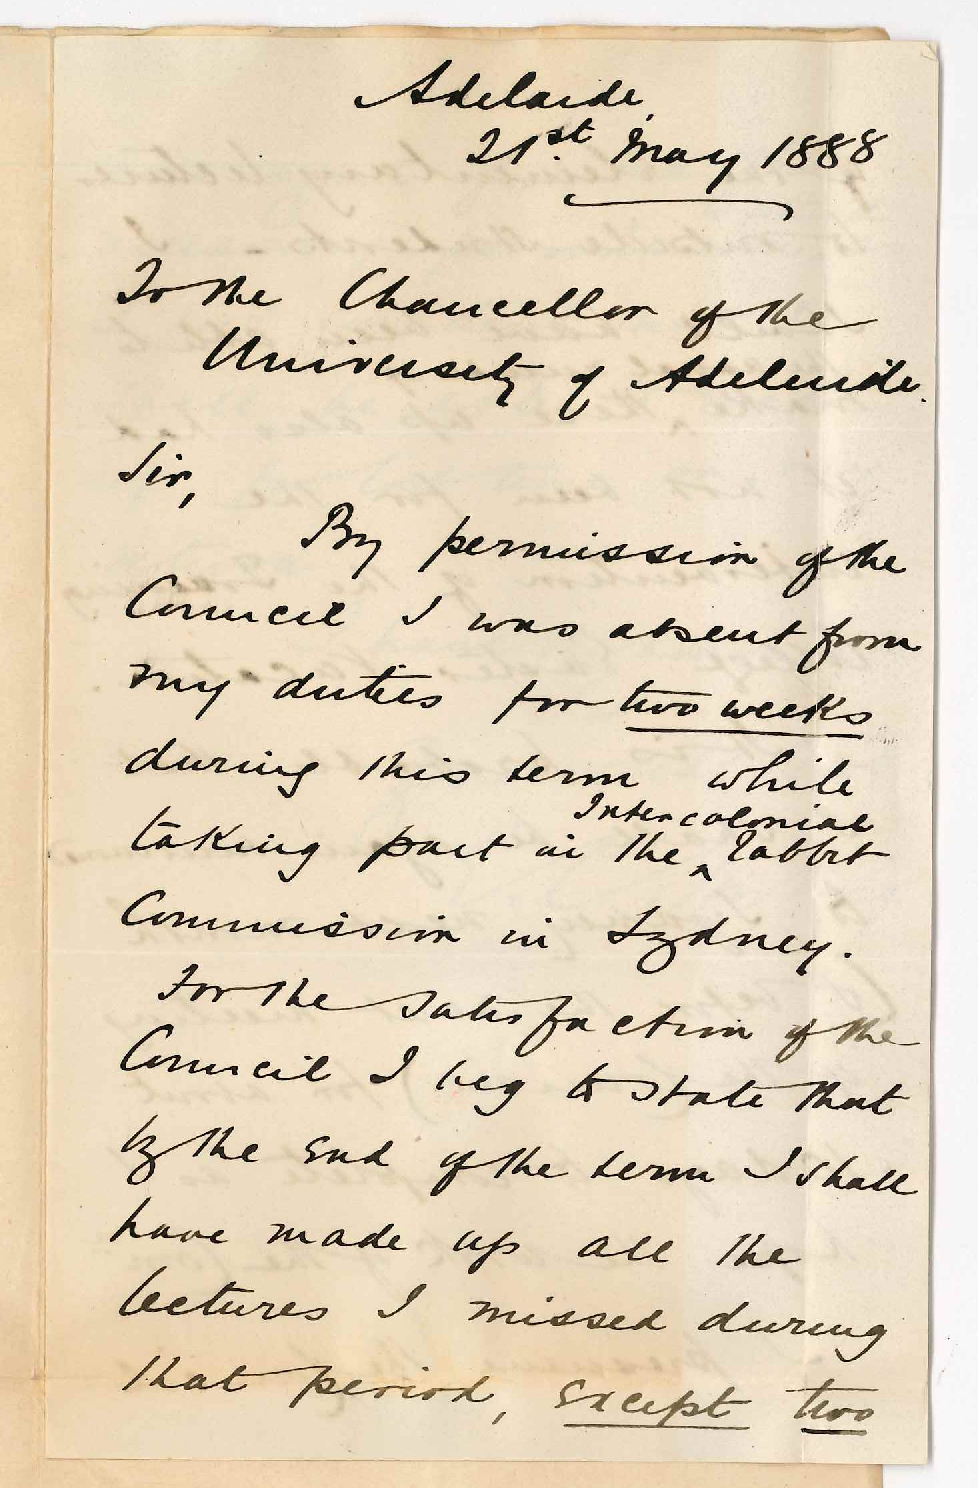 Adelaide,
21st. May 1888
To the Chancellor of the
University of Adelaide.
Sir,
By permission of the
Council I was absent from
my duties for two weeks
during this term while
Intercolonial
taking part in the ‸ Rabbit
Commission in Sydney.
For the satisfaction of the
Council I beg to state that
by the end of the term I shall
have made up all the
lectures I missed during
that period, except two